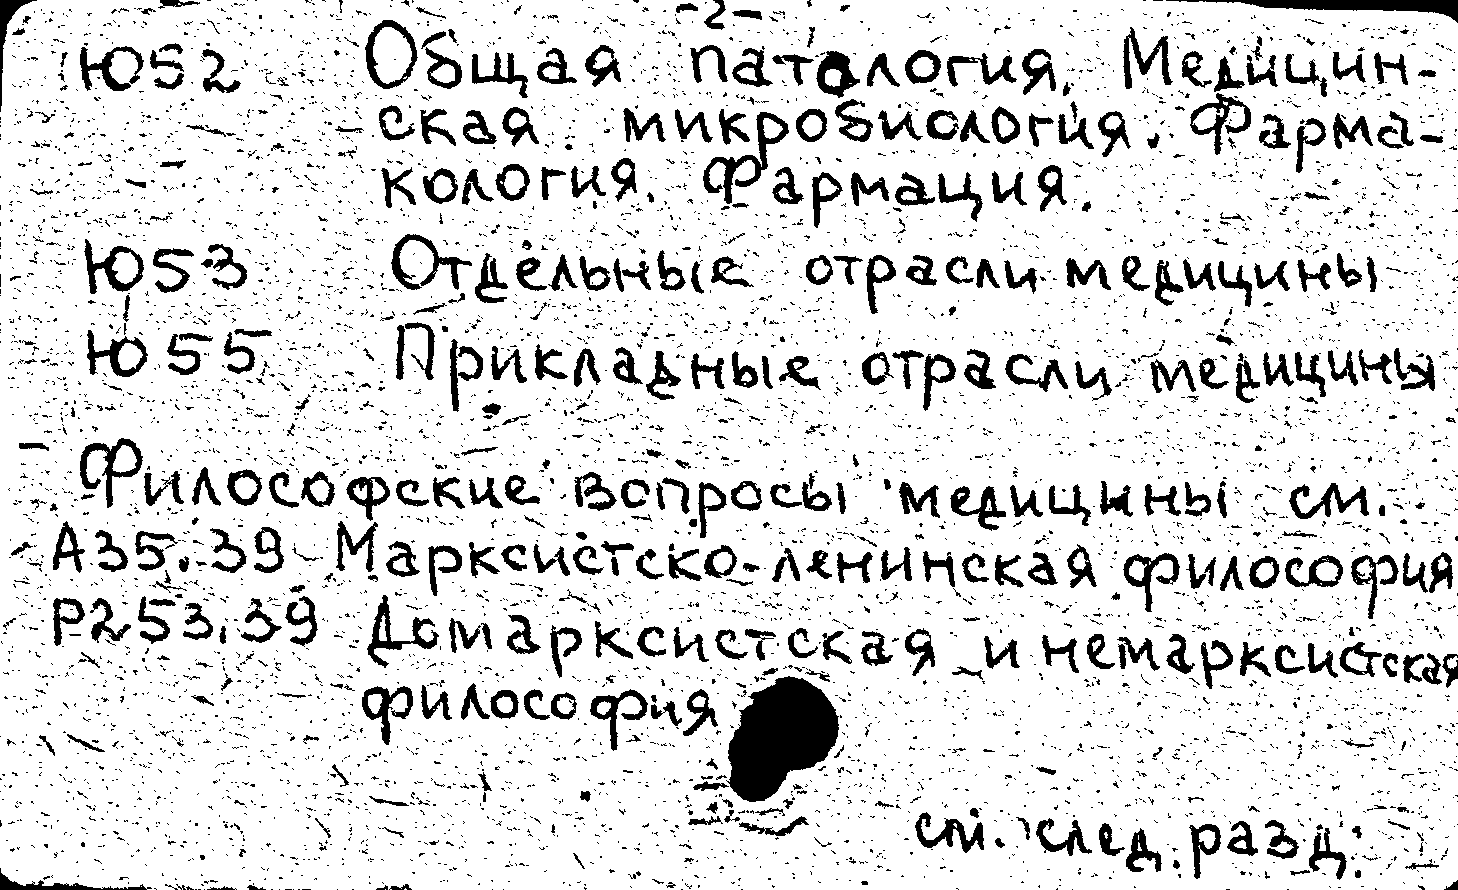 -2-
Ю52 Общая патология. Медицин-
ская микробиология. Фарма-
кология. Фармация.
Ю53 Отдельные отрасли медицины
Ю55 Прикладные отрасли медицины
- Философские вопросы медицины см.
А35.39 Марксистско-ленинская философия
Р253.39 Домарксистская и немарксистская
философия
см. след. разд.